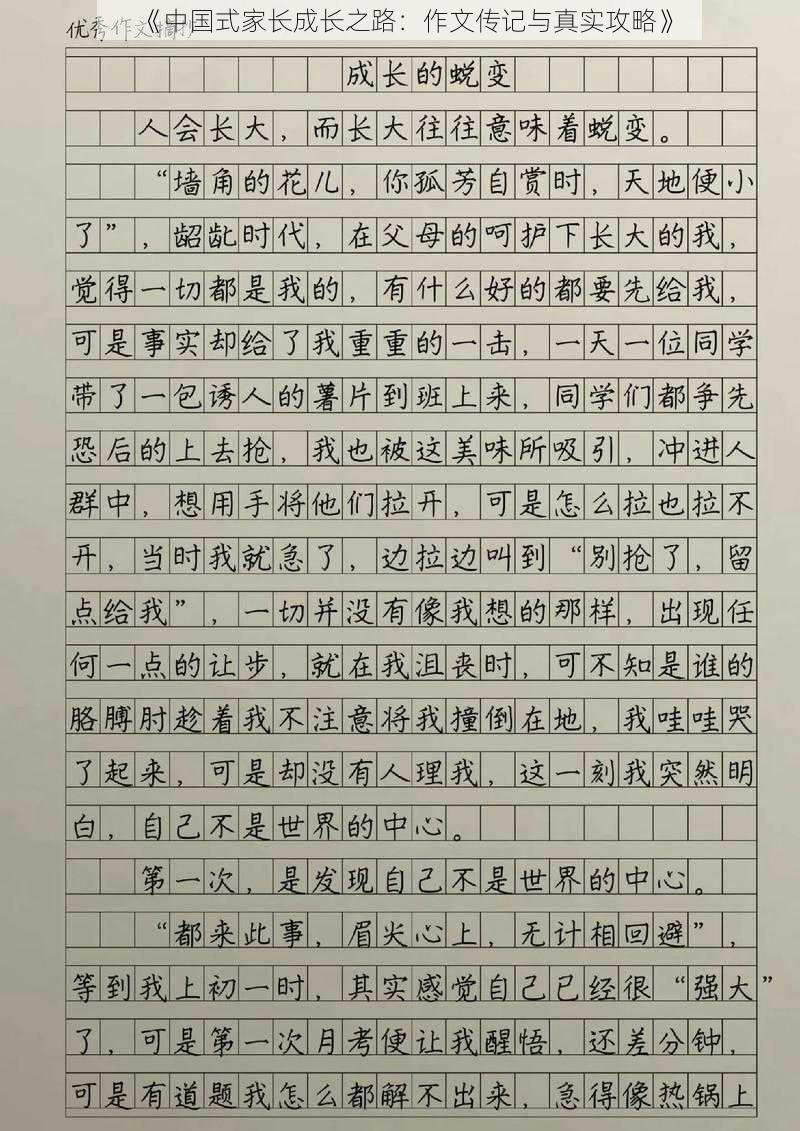 《中国式家长成长之路：作文传记与真实攻略》
优秀作文摘抄
成长的蜕变
人会长大，而长大往往意味着蜕变。
“墙角的花儿，你孤芳自赏时，天地便小
了”，龆龀时代，在父母的呵护下长大的我，
觉得一切都是我的，有什么好的都要先给我，
可是事实却给了我重重的一击，一天一位同学
带了一包诱人的薯片到班上来，同学们都争先
恐后的上去抢，我也被这美味所吸引，冲进人
群中，想用手将他们拉开，可是怎么拉也拉不
开，当时我就急了，边拉边叫到“别抢了，留
点给我”，一切并没有像我想的那样，出现任
何一点的让步，就在我沮丧时，可不知是谁的
胳膊肘趁着我不注意将我撞倒在地，我哇哇哭
了起来，可是却没有人理我，这一刻我突然明
白，自己不是世界的中心。
第一次，是发现自己不是世界的中心。
“都来此事，眉尖心上，无计相回避”，
等到我上初一时，其实感觉自己已经很“强大”
了，可是第一次月考便让我醒悟，还差分钟，
可是有道题我怎么都解不出来，急得像热锅上